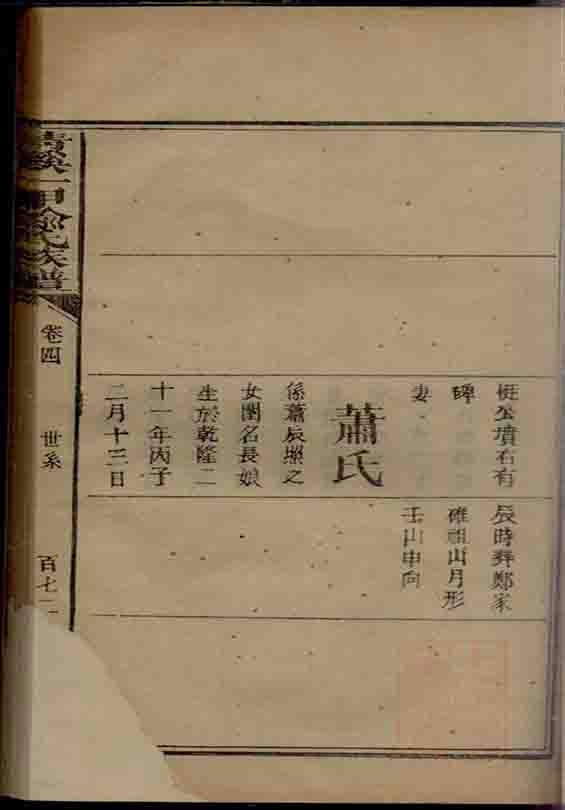 挺公墳右有
碑
妻
蕭氏
係蕭辰照之
女閨名長娘
生於乾隆二
十一年丙子
二月十三日
辰時葬鄭家
碓祖山月形
壬山申向
一甲 氏族譜
卷四
世系
百七